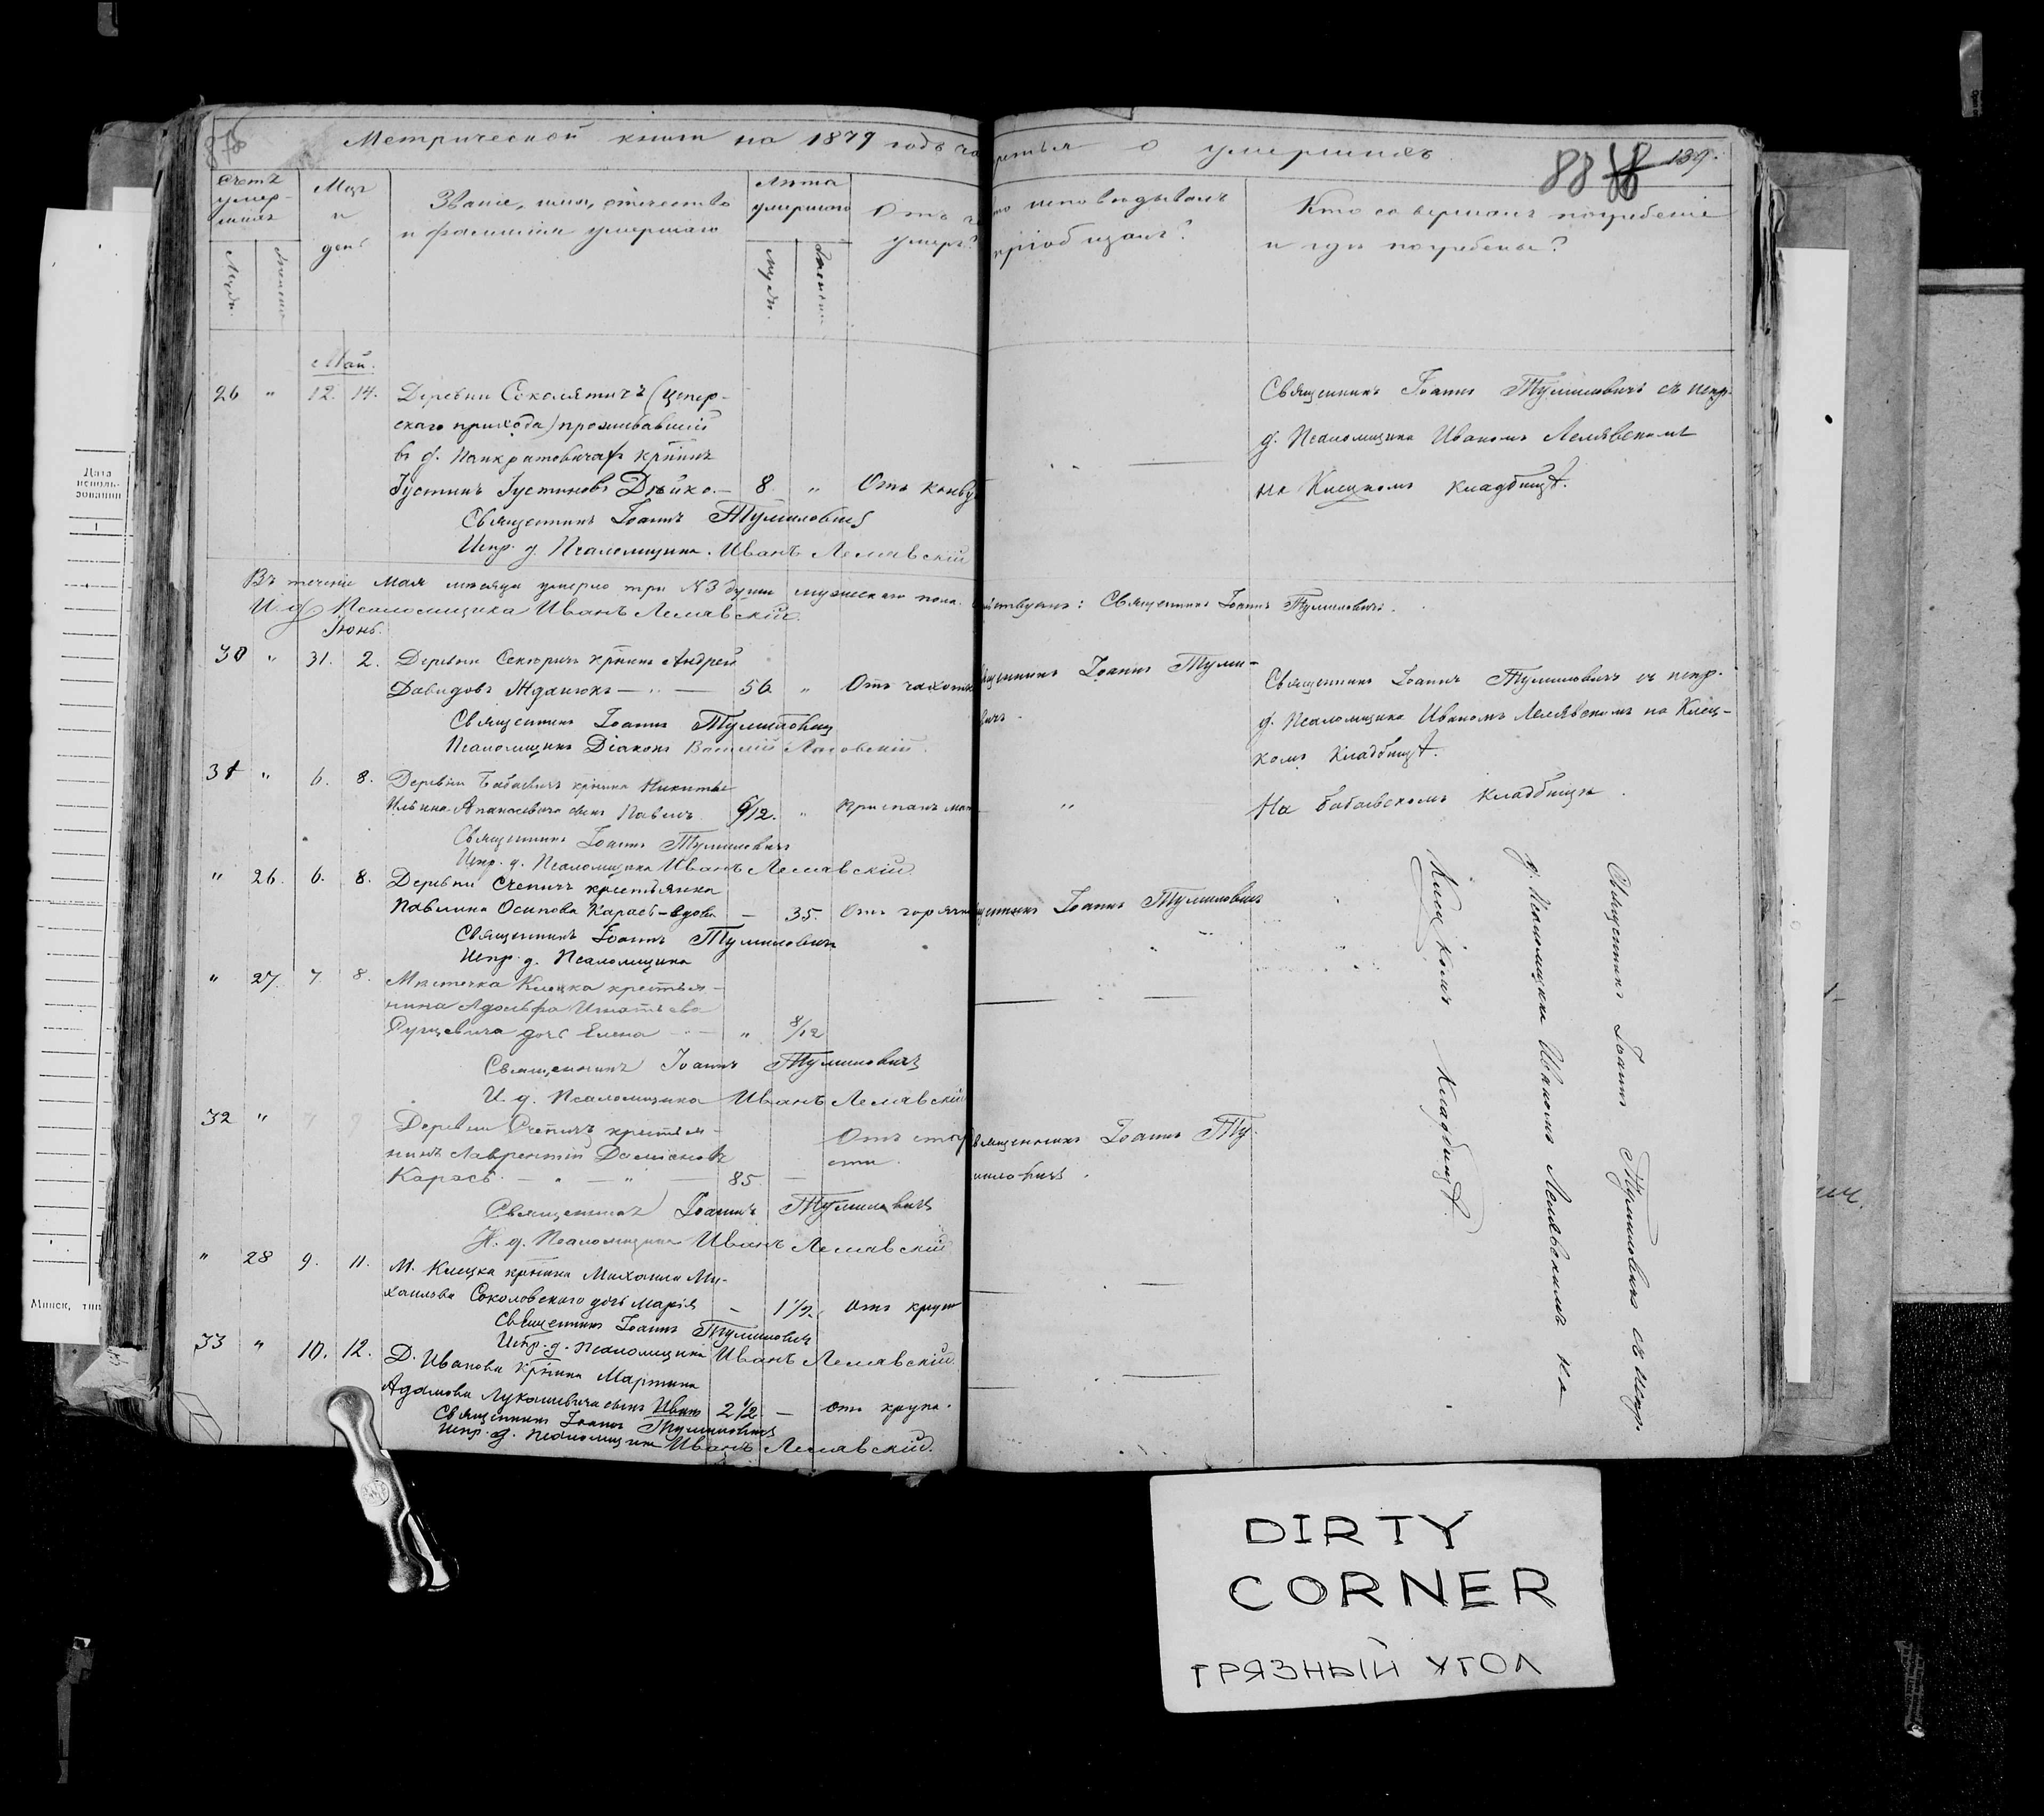 Метрической книги на 1879 годъ часть третья о умершихъ.
88
139.
Счетъ умер-
шихъ
Мцъ
и
день
Званіе, имя, отчество
и фамилія умершаго
Лѣта
умершаго
Отъ чего
умеръ?
Кто исповѣдывалъ
и пріобщалъ?
Кто совершалъ погребеніе
и гдѣ погребены?
Мужск.
Женска
Мужск.
Женска
Май.
26 " 12. 14. Деревни Соколятичъ (Цепер-
скаго прихода) проживавшій
въ д. Панкратовичахъ кр̃нинъ
Іустинъ Іустиновъ Дѣйко. — 8 " Отъ
Священникъ Іоаннъ Тумиловичъ
Испр. д. Псаломщика Иванъ Лемявскій
Священникъ Іоаннъ Тумиловичъ съ испр.
д. Псаломщика Иваномъ Лемявскимъ
на Клецкомъ кладбищѣ.
Въ теченіе Мая мѣсяца умерло три №3 души мужескаго пола. Священникъ Іоаннъ Тумиловичъ.
И. д. Псаломщика Иванъ Лемявскій.
Іюнь.
30 " 31. 2. Деревни Секеричъ кр̃нинъ Андрей
Давидовъ Жданюкъ — " — 56 " Отъ чахотки
Священникъ Іоаннъ Тумиловичъ
Псаломщикъ Діаконъ Василій
Священникъ Іоаннъ Туми-
ловичъ.
Священникъ Іоаннъ Тумиловичъ съ испр.
д. Псаломщика Иваномъ Лемявскимъ на Клец-
комъ Кладбищѣ.
31 " 6. 8. Деревни Бабаевичъ кр̃нина Никиты
Ильина Апанасевича сынъ Павелъ 6/12. "
Священникъ Іоаннъ Тумиловичъ
Испр. д. Псаломщика Иванъ Лемявскій
"
На Бабаевскомъ Кладбищѣ.
" 26. 6. 8. Деревни Счепичъ крестьянка
Павлина Осипова Карась-вдова — 35. Отъ горячки
Священникъ Іоаннъ Тумиловичъ
Испр. д. Псаломщика
Священникъ Іоаннъ Тумиловичъ
" 27. 7 8. Мѣстечка Клецка крестья-
нина Адольфа Игнатьева
дочь Елена — " 8/12
Священникъ Іоаннъ Тумиловичъ
И. д. Псаломщика Иванъ Лемявскій
32 " 7 9 Деревни Счепичъ крестья-
нинъ Лаврентій Даміановъ
Карась — " — " — 85. —
Отъ старо-
сти.
Священникъ Іоаннъ Тумиловичъ
И. д. Псаломщика Иванъ Лемявскій
Священникъ Іоаннъ Ту-
миловичъ.
" 28 9. 11. М. Клецка кр̃нина Михаила Ми-
хаилова Соколовскаго дочь Марія — 1 1/2. Отъ крупа
Священникъ Іоаннъ Тумиловичъ
Испр. д. Псаломщика Иванъ Лемявскій.
33 " 10. 12. Д. Иванова кр̃нина Мартина
Адамова Лукашевича сынъ Иванъ 2 1/2. — отъ крупа.
Священникъ Іоаннъ Тумиловичъ
Испр. д. Псаломщика Иванъ Лемявскій.
Священникъ Іоаннъ Тумиловичъ съ испр.
д. Псаломщика Иваномъ Лемявскимъ на
Клецкомъ Кладбищѣ.
Дата
исполь-
зования
1
Минск, тип
DIRTY
CORNER
ГРЯЗНЫЙ УГОЛ